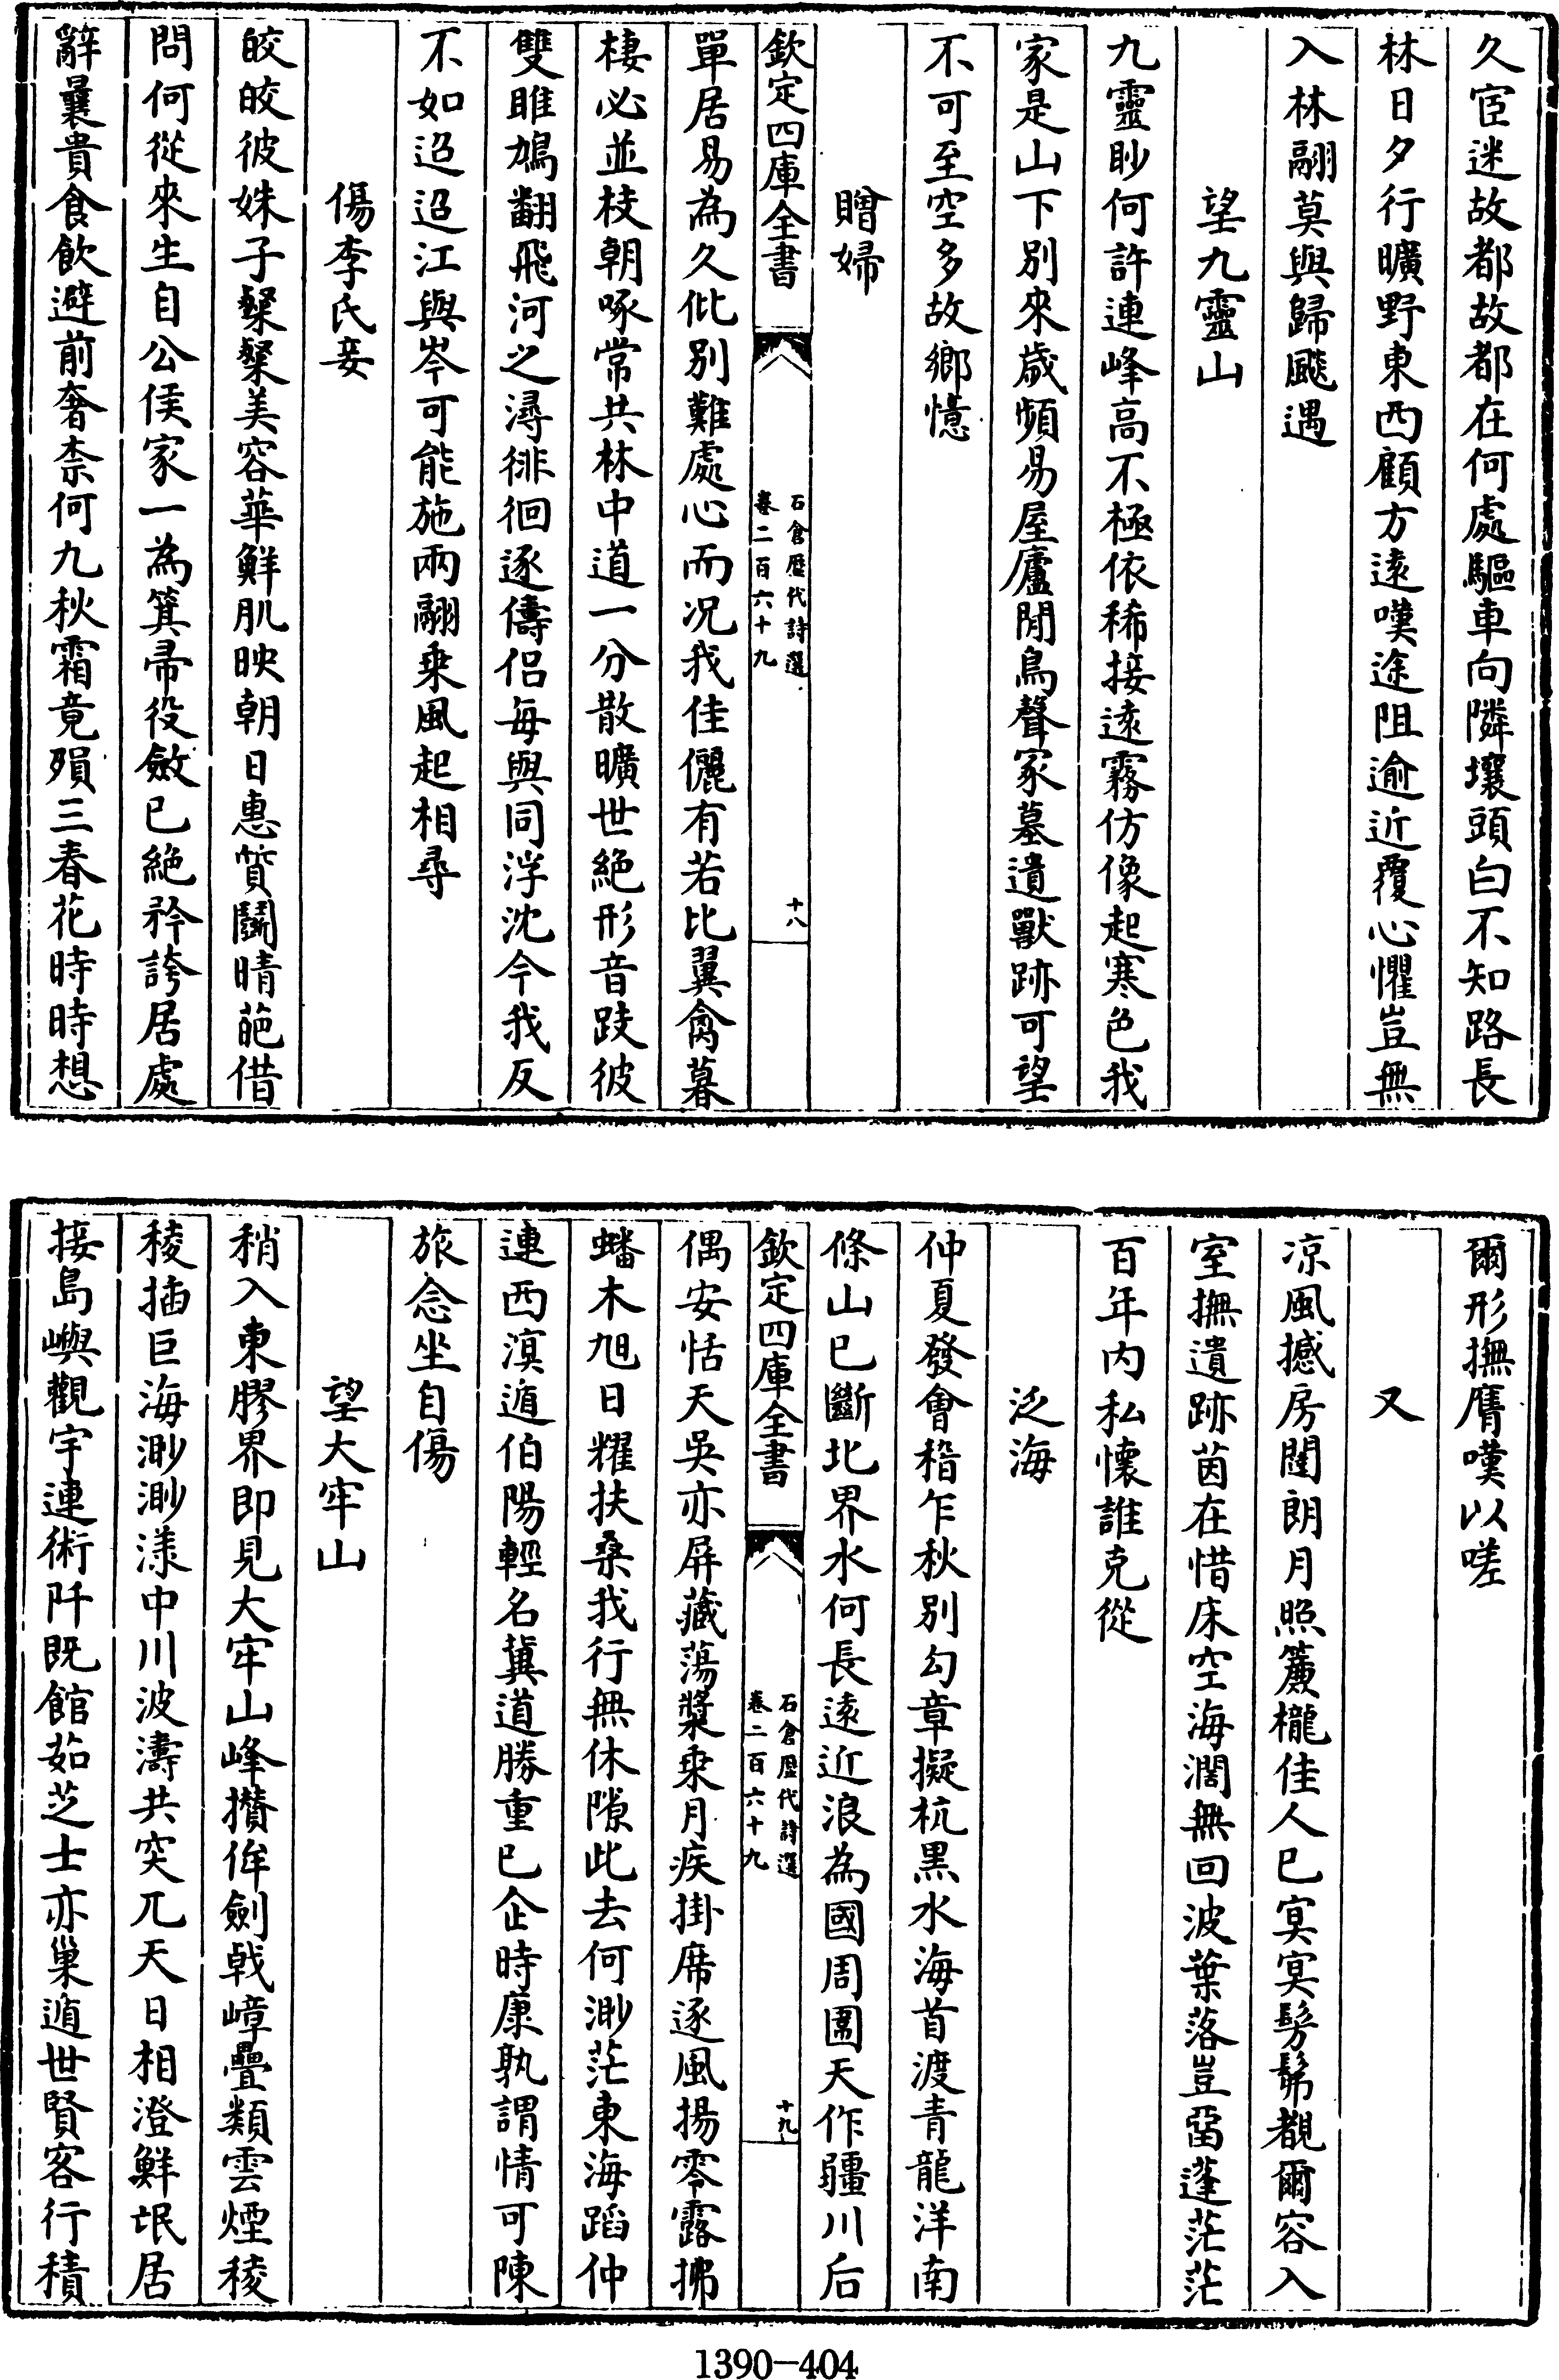 久宦迷故都故都在何處驅車向隣壤頭白不知路長
林日夕行曠野東西顧方遠嘆途阻逾近覆心懼豈無
入林翮莫與歸飈遇
望九靈山
九靈眇何許連峰高不極依稀接遠霧仿像起寒色我
家是山下別來歲頻易屋廬閒鳥聲冢墓遺獸跡可望
不可至空多故鄉憶
贈婦
欽定四庫全書
石倉歷代詩選
卷二百六十九
十八
單居易為久仳別難處心而况我佳儷有若比翼禽暮
棲必並枝朝啄常共林中道一分散曠世絕形音跂彼
雙雎鳩翻飛河之潯徘徊逐儔侶每與同浮沈今我反
不如迢迢江與岑可能施兩翮乘風起相尋
傷李氏妾
皎皎彼姝子粲粲美容華鮮肌映朝日惠質鬭晴葩借
問何從來生自公侯家一為箕帚役斂已絕矜誇居處
辭曩貴食飲避前奢柰何九秋霜竟殞三春花時時想
爾形撫膺嘆以嗟
又
凉風撼房闥朗月照簾櫳佳人已寘寘髣髴覩爾容入
室撫遺跡茵在惜床空海濶無回波葉落豈留蓬茫茫
百年内私懷誰克從
泛海
仲夏發會稽乍秋別勾章擬杭黑水海首渡青龍洋南
條山已斷北界水何長遠近浪為國周圍天作疆川后
欽定四庫全書
石倉歷代詩選
卷二百六十九
十九
偶安恬天吳亦屏藏蕩槳乘月疾掛席逐風揚零露拂
蟠木旭日耀扶桑我行無休隙此去何渺茫東海蹈仲
連西溟遁伯陽輕名冀道勝重已企時康孰謂情可陳
旅念坐自傷
望大牢山
稍入東膠界即見大牢山峰攅侔劍㦸嶂疊類雲煙稜
稜插巨海渺渺漾中川波濤共突兀天日相澄鮮氓居
接島嶼觀宇連術阡既館茹芝士亦巢遁世賢客行積
1390-404